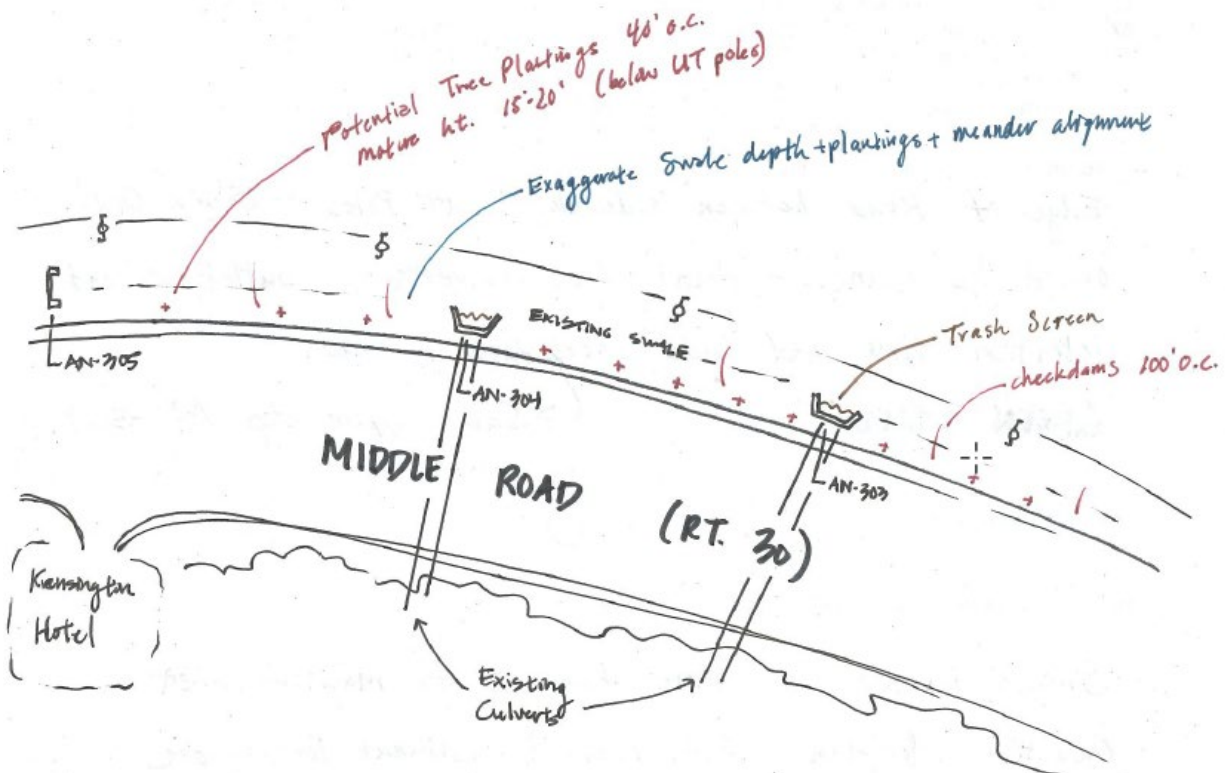 Potential Tree Plantings 40' o.c.
mature ht. 15'-20' (below UT poles)
Exaggerate Swale depth + plantings + meander alignment
EXISTING SWALE
Trash Screen
checkdams 100' o.c.
AN-305
AN-304
AN-303
MIDDLE ROAD (RT. 30)
Kensington
Hotel
Existing
Culverts